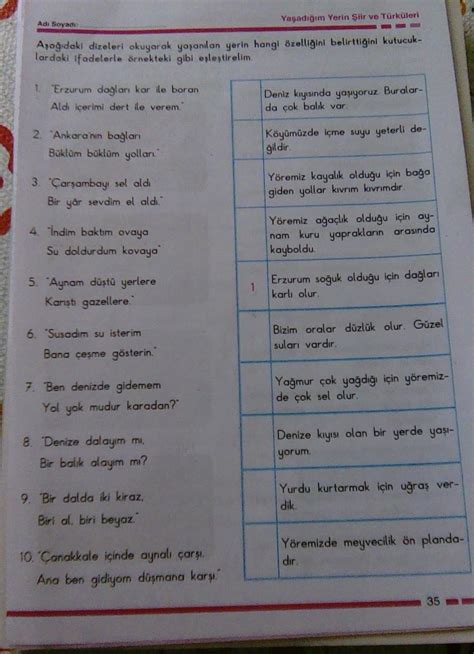 Adı Soyadı:
Yaşadığım Yerin Şiir ve Türküleri
Aşağıdaki dizeleri okuyarak yaşanılan yerin hangi özelliğini belirttiğini kutucuk-
lardaki ifadelerle örnekteki gibi eşleştirelim.
1. "Erzurum dağları kar ile boran
Aldı içerimi dert ile verem."
2. "Ankara'nın bağları
Büklüm büklüm yolları."
3. "Çarşambayı sel aldı
Bir yâr sevdim el aldı."
4. "İndim baktım ovaya
Su doldurdum kovaya"
5. "Aynam düştü yerlere
Karıştı gazellere."
6. "Susadım su isterim
Bana çeşme gösterin."
7. "Ben denizde gidemem
Yol yok mudur karadan?"
8. "Denize dalayım mı,
Bir balık alayım mı?
9. "Bir dalda iki kiraz,
Biri al, biri beyaz."
10. "Çanakkale içinde aynalı çarşı.
Ana ben gidiyom düşmana karşı."
Deniz kıyısında yaşıyoruz. Buralar-
da çok balık var.
Köyümüzde içme suyu yeterli de-
ğildir.
Yöremiz kayalık olduğu için bağa
giden yollar kıvrım kıvrımdır.
Yöremiz ağaçlık olduğu için ay-
nam kuru yaprakların arasında
kayboldu.
1 Erzurum soğuk olduğu için dağları
karlı olur.
Bizim oralar düzlük olur. Güzel
suları vardır.
Yağmur çok yağdığı için yöremiz-
de çok sel olur.
Denize kıyısı olan bir yerde yaşı-
yorum.
Yurdu kurtarmak için uğraş ver-
dik.
Yöremizde meyvecilik ön planda-
dır.
35